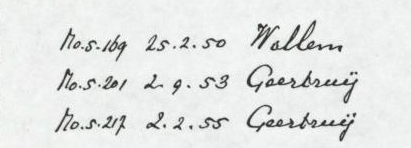 No.S.169 25.2.50 Wallem
No.S.201 2.9.53 Geerbruÿ
No.S.217 2.2.55 Geerbruÿ